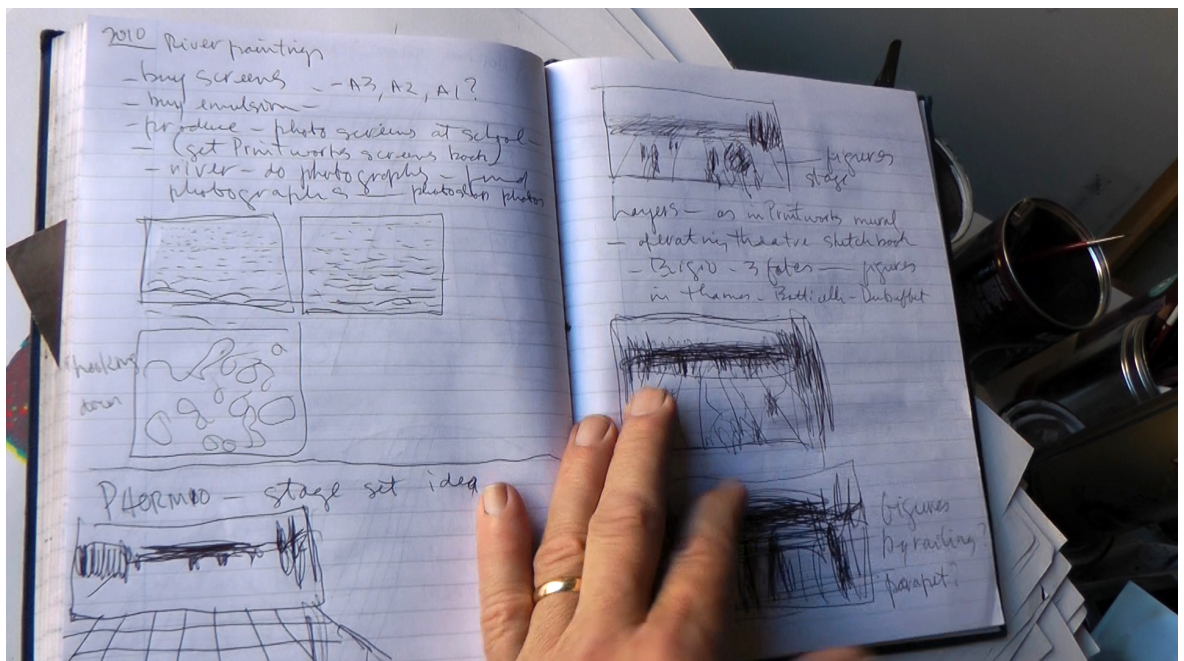 2010 River paintings
- buy screens - A3, A2, A1?
- buy emulsion -
- produce - photo screens at school -
- (get Printworks screens back)
- river - do photographs - find
photographs - photoshop photos
looking
down
PALERMO - stage set idea
figures
stage
Layers - as in Printworks mural
- theatre sketchbook
- 3 fates - figures
in thames - Botticelli - Dubuffet
figures
by railing?
parapet?